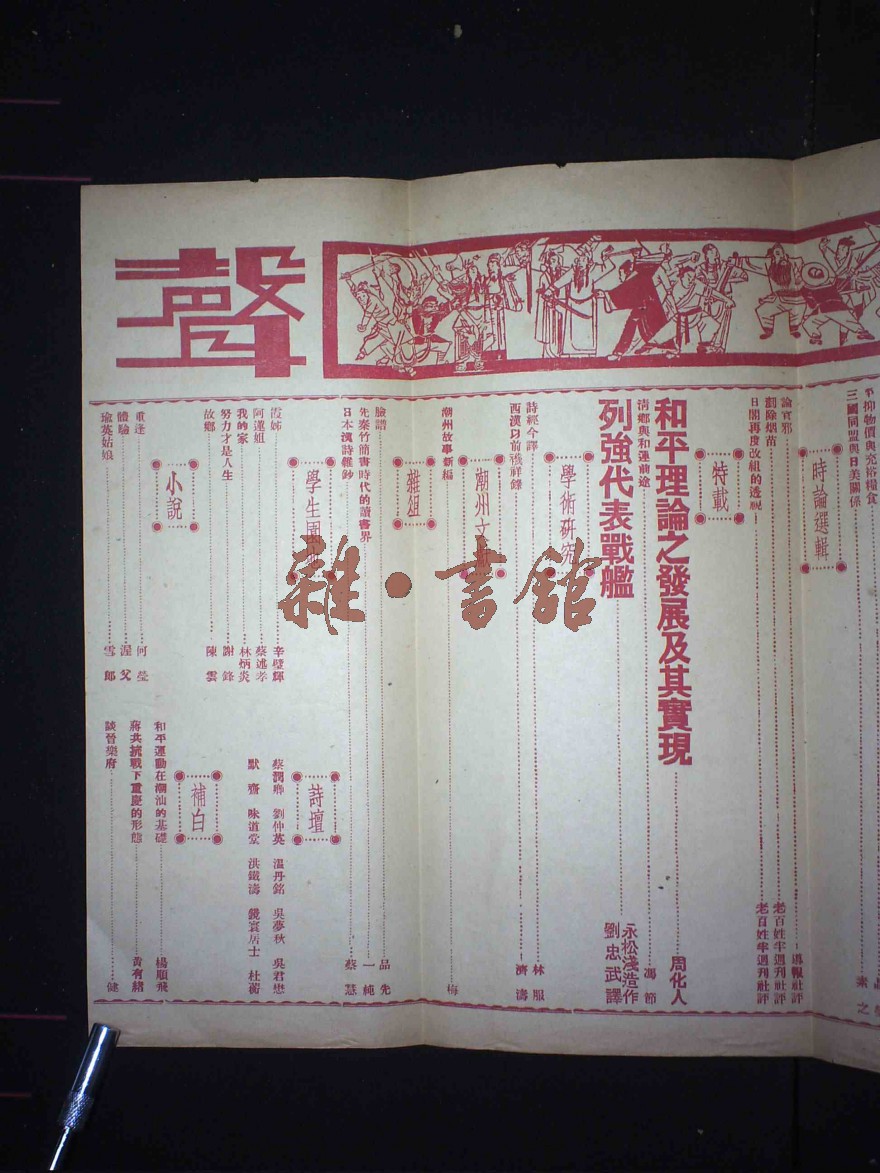 聲
平抑物價與充裕糧食
三國同盟與日美關係 素之
時論選輯
論言邪 導報社評
剷除烟苗 老百姓半週刊社評
日閣再度改組的透視 老百姓半週刊社評
特載
和平理論之發展及其實現 周化人
清鄉與和運前途 馮節
列強代表戰艦 永松淺造作 劉忠武譯
學術研究
詩經今譯 林服
西漢以前禨祥錄 濟濤
潮州文
潮州故事新編 梅
雜俎
臉譜 品先
先秦竹簡書時代的讀書界 一純
日本漢詩雜鈔 蔡慧
學生園地
霞姊 辛璧輝
阿蓮姐 蔡述孝
我的家 林炳炎
努力才是人生 謝鋒
故鄉 陳雲
詩壇
蔡潤卿 劉仲英 溫丹銘 吳夢秋 吳君懋
默齋 味道堂 洪鐵濤 錢寰居士 杜蘅
小說
重逢 何瑩
體驗 渥父
瑜英姑娘 雪郎
補白
和平運動在潮汕的基礎 楊順飛
蔣共抗戰下重慶的形態 黃有緒
談晉樂府 健
雜·書館